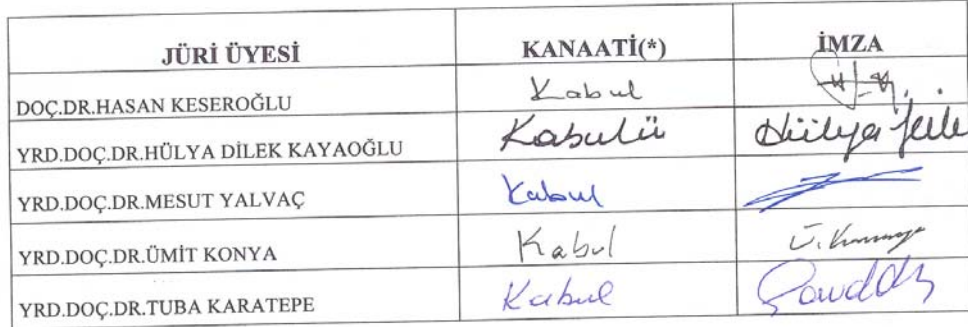 JÜRİ ÜYESİ KANAATİ(*) İMZA
DOÇ.DR.HASAN KESEROĞLU Kabul
YRD.DOÇ.DR.HÜLYA DİLEK KAYAOĞLU Kabulü Hülya
YRD.DOÇ.DR.MESUT YALVAÇ Kabul
YRD.DOÇ.DR.ÜMİT KONYA Kabul
YRD.DOÇ.DR.TUBA KARATEPE Kabul